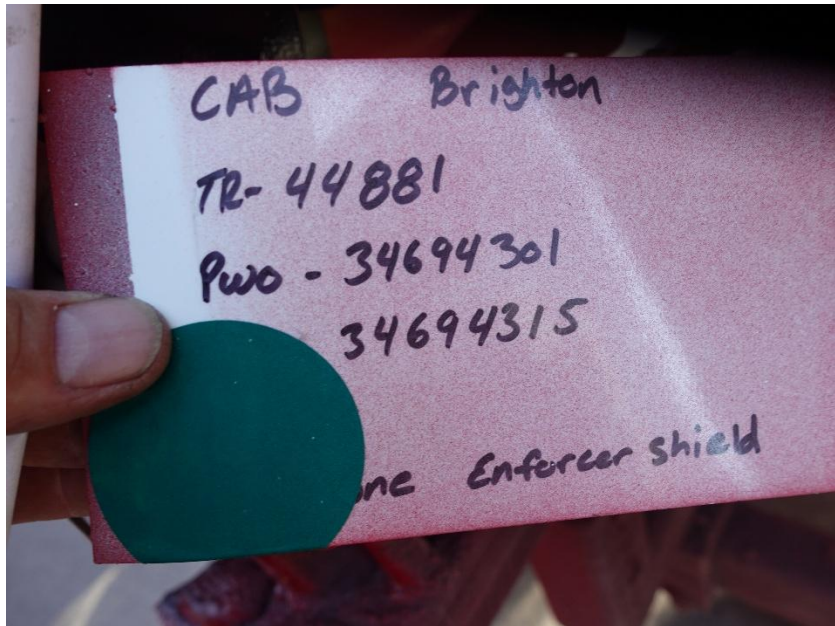 CAB Brighton
TR- 44881
PWO - 34694301
34694315
Enforcer shield